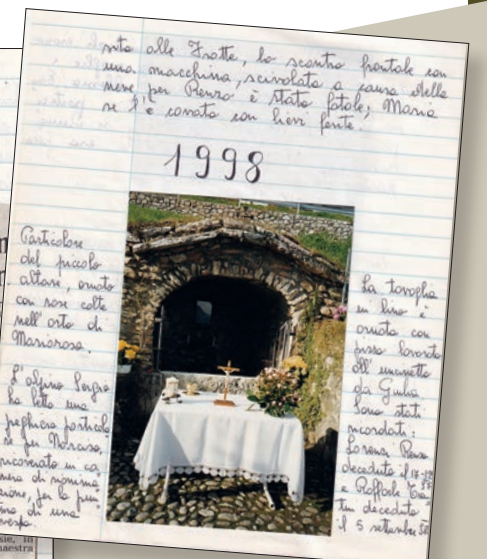 sito alle Fratte, lo scontro frontale con
una macchina, scivolata a causa della
neve per Renzo è stato fatale; Maria
se l'è cavata con lievi ferite.
1998
Particolare
del piccolo
altare, ornato
con rose colte
nell'orto di
Mariarosa.
L'alpino Sergio
ha letto una
preghiera particola
re per Narciso,
ricoverato in ca
mera di rianima
zione, per la pun
tura di una
vespa.
La tovaglia
in lino è
ornata con
pizzo lavorato
all'uncinetto
da Giulia
Sono stati
ricordati:
Lorenzi Renzo
deceduto il
Raffaele
tin deceduto
il 5 settembre